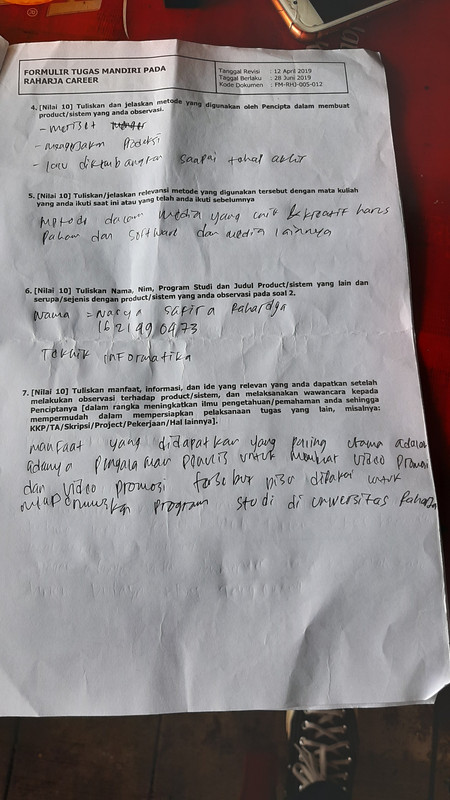 FORMULIR TUGAS MANDIRI PADA
RAHARJA CAREER
Tanggal Revisi : 12 April 2019
Taggal Berlaku : 28 Juni 2019
Kode Dokumen : FM-RHJ-005-012
4. [Nilai 10] Tuliskan dan jelaskan metode yang digunakan oleh Pencipta dalam membuat
product/sistem yang anda observasi.
- meriset
- mengerjakan Produksi
- lalu dikembangkan sampai tahal akhir
5. [Nilai 10] Tuliskan/jelaskan relevansi metode yang digunakan tersebut dengan mata kuliah
yang anda ikuti saat ini atau yang telah anda ikuti sebelumnya
metode dalam media yang unik & kreatif harus
Paham dan Software dan media lainnya
6. [Nilai 10] Tuliskan Nama, Nim, Program Studi dan Judul Product/sistem yang lain dan
serupa/sejenis dengan product/sistem yang anda observasi pada soal 2.
Nama = Nasya Safira Rahardja
1621490473
Teknik informatika
7. [Nilai 10] Tuliskan manfaat, informasi, dan ide yang relevan yang anda dapatkan setelah
melakukan observasi terhadap product/sistem, dan melaksanakan wawancara kepada
Penciptanya [dalam rangka meningkatkan ilmu pengetahuan/pemahaman anda sehingga
mempermudah dalam mempersiapkan pelaksanaan tugas yang lain, misalnya:
KKP/TA/Skripsi/Project/Pekerjaan/Hal lainnya].
manfaat yang didapatkan yang paling utama adalah
adanya Pengalaman Penulis untuk membuat video Promosi
dan video promosi tersebut bisa dipakai untuk
program studi di universitas Raharja